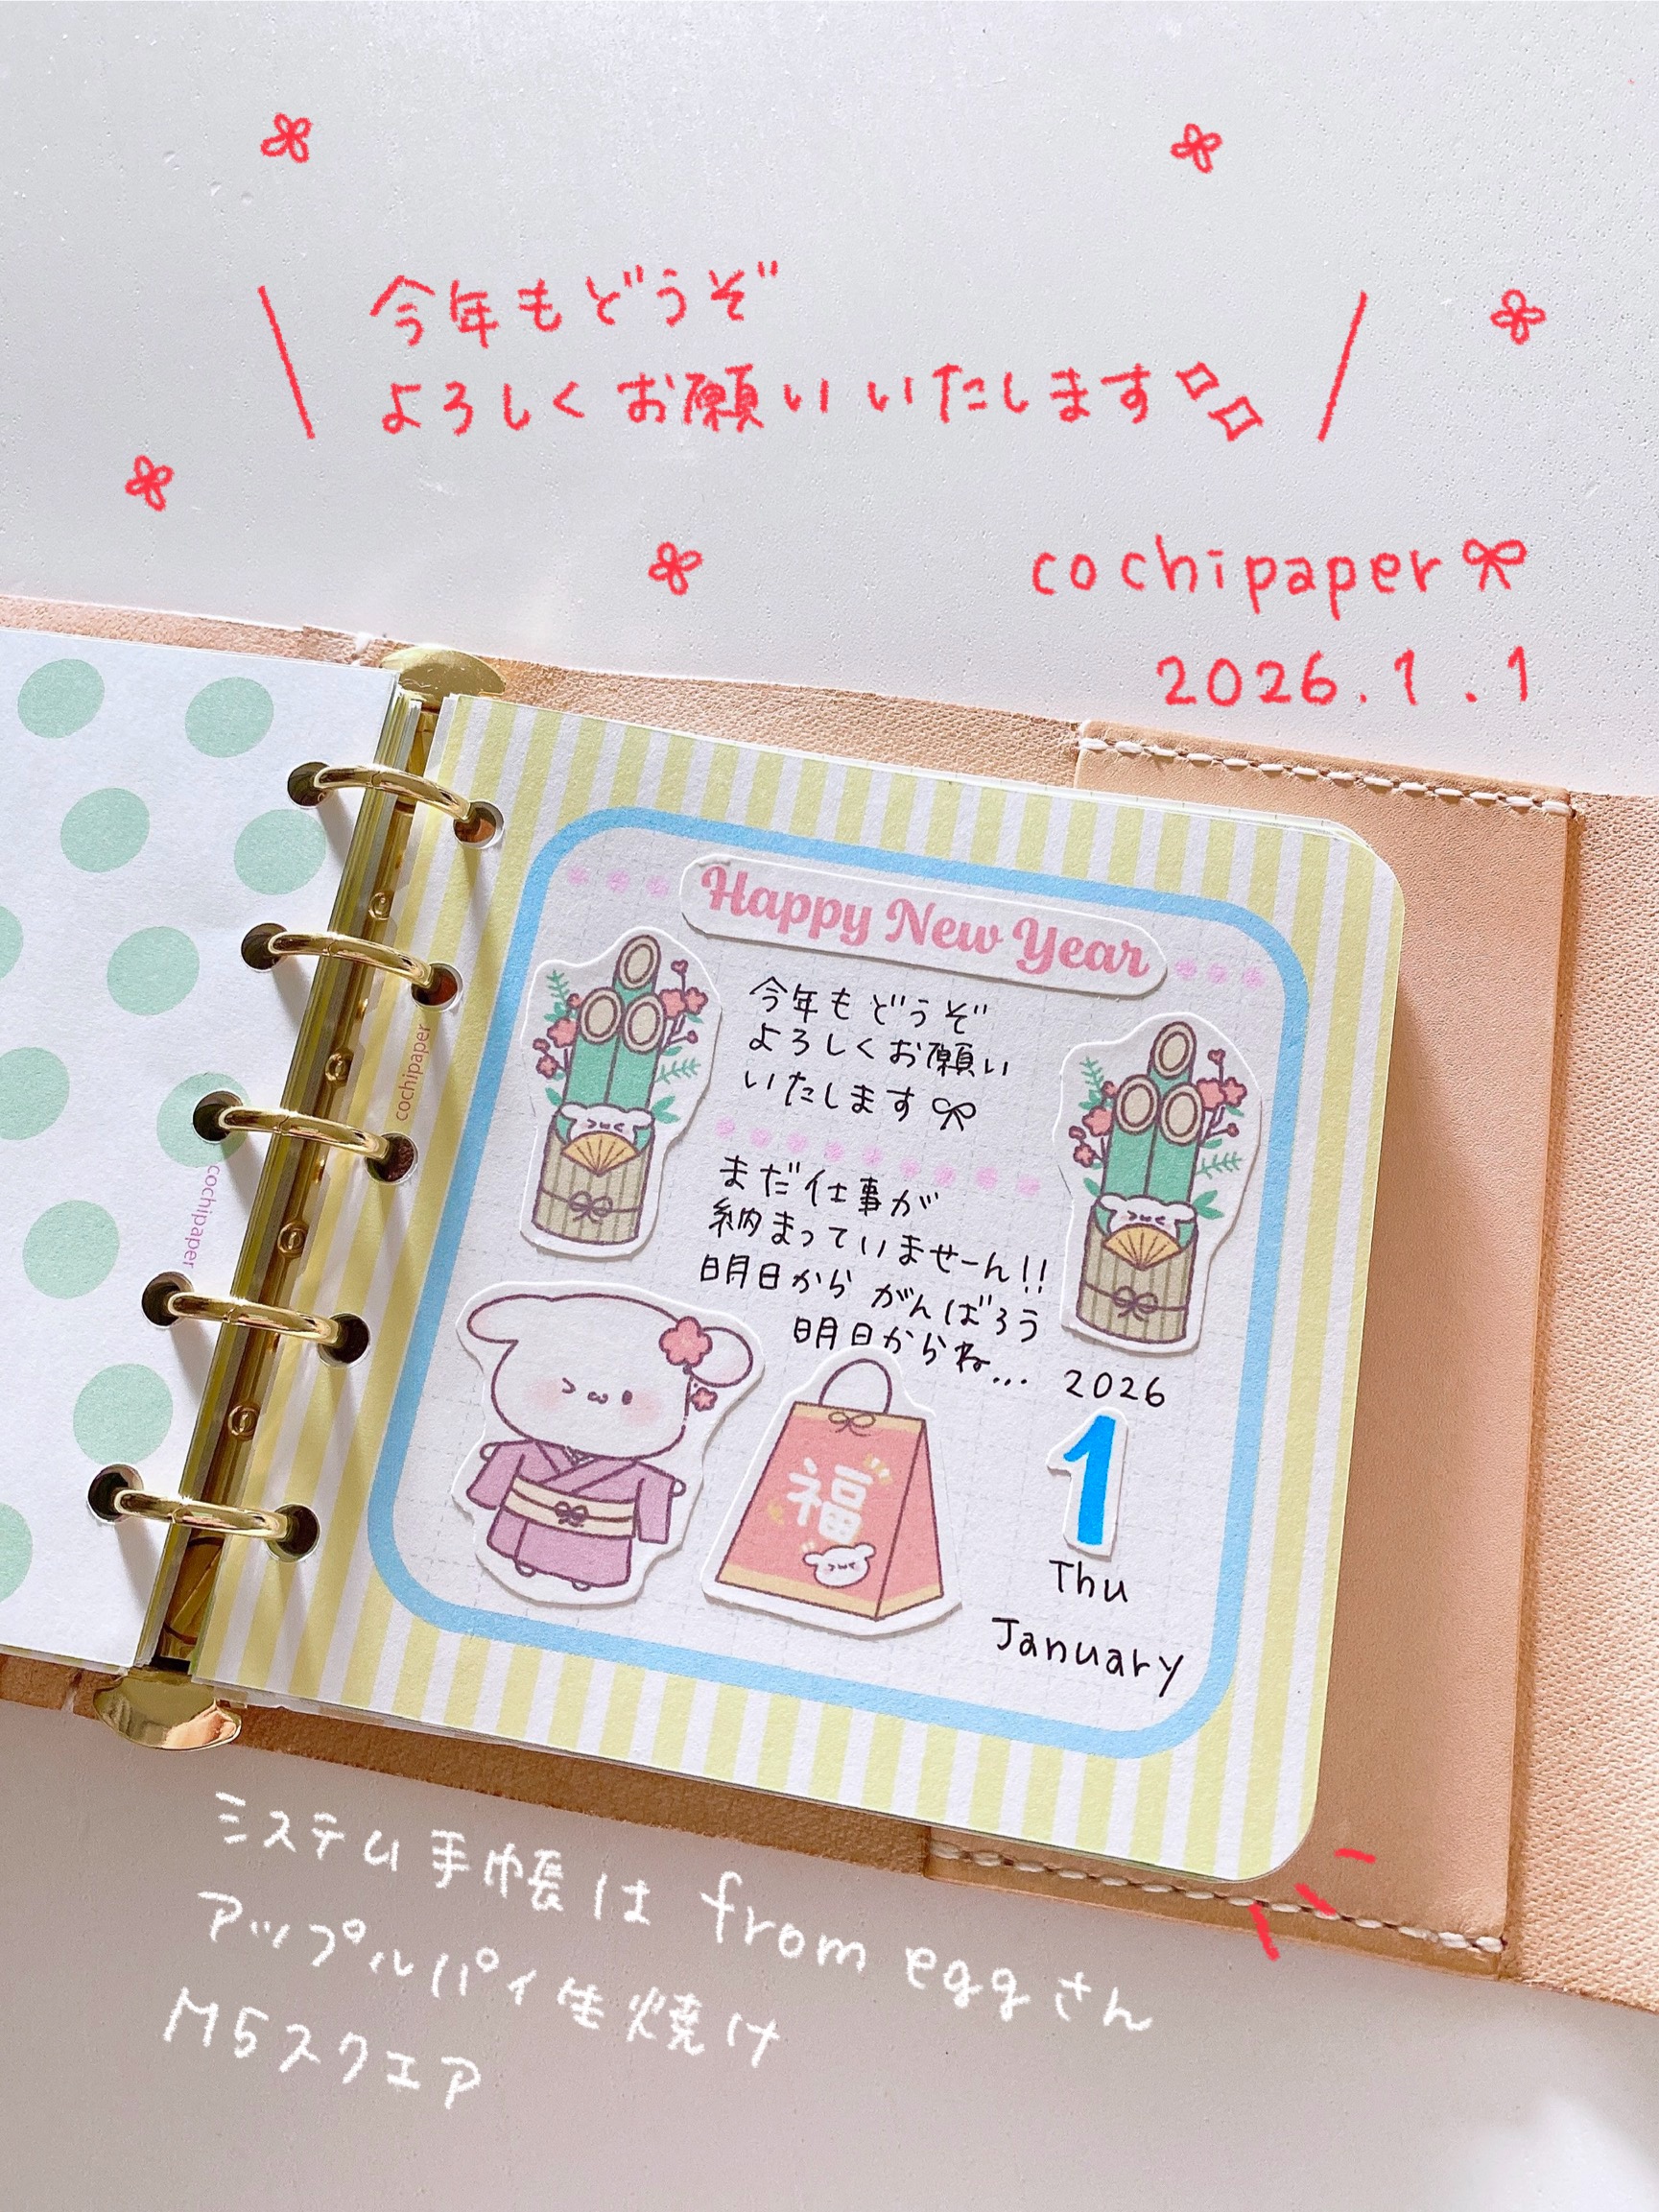 今年もどうぞ
よろしくお願いいたします
cochipaper
2026.1.1
Happy New Year
今年もどうぞ
よろしくお願い
いたします
まだ仕事が
納まっていませーん!!
明日からがんばろう
明日からね...
福
2026
1
Thu
January
cochipaper
cochipaper
システム手帳は from eggさん
アップルパイ生焼け
M5スクエア